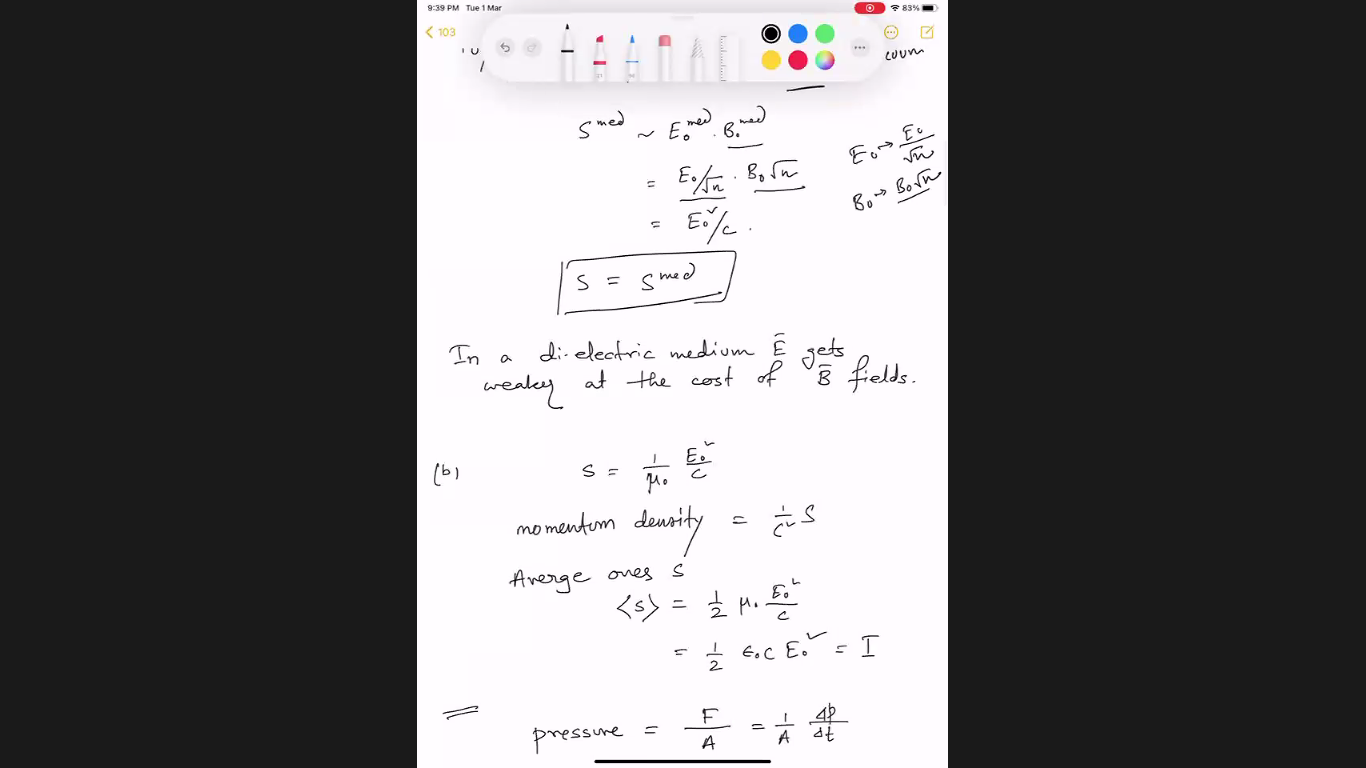 9:39 PM Tue 1 Mar
83%
103
S^med ~ E₀^med . B₀^med
= E₀/√n . B₀√n
E₀ → E₀/√n
B₀ → B₀√n
= E₀²/c .
S = S^med
In a di-electric medium E̅ gets
weaker at the cost of B̅ fields.
(b) S = 1/μ₀ E₀²/c
momentum density = 1/c² S
Averge ones S
<S> = 1/2 μ₀ E₀²/c
= 1/2 ϵ₀c E₀² = I
pressure = F/A = 1/A Δp/Δt